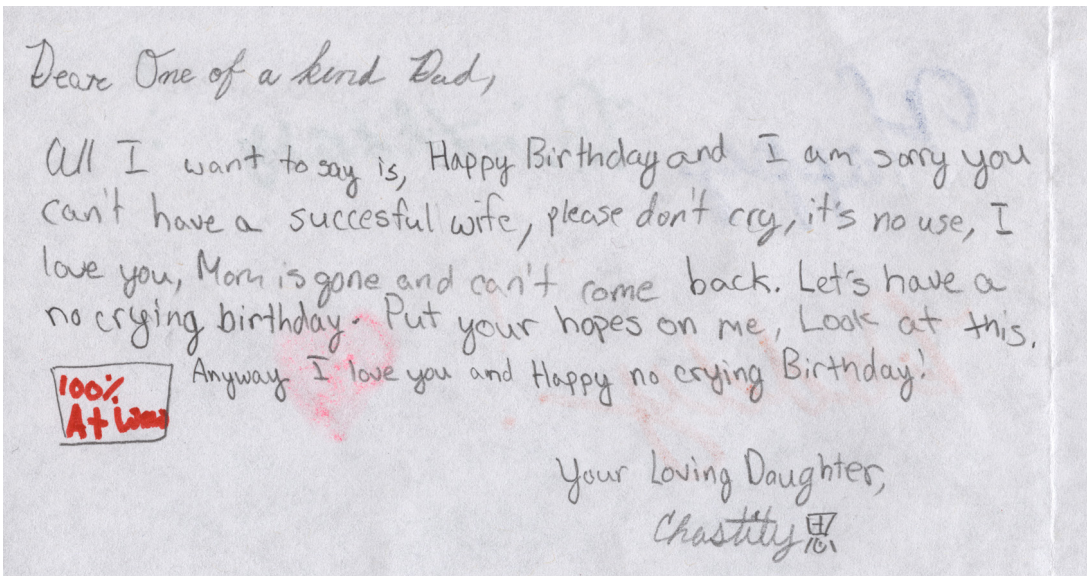 Dear One of a kind Dad,
All I want to say is, Happy Birthday and I am sorry you
can't have a succesful wife, please don't cry, it's no use, I
love you, Mom is gone and can't come back. Let's have a
no crying birthday. Put your hopes on me, Look at this.
100%
A+ Wow
Anyway I love you and Happy no crying Birthday!
Your Loving Daughter,
Chastity